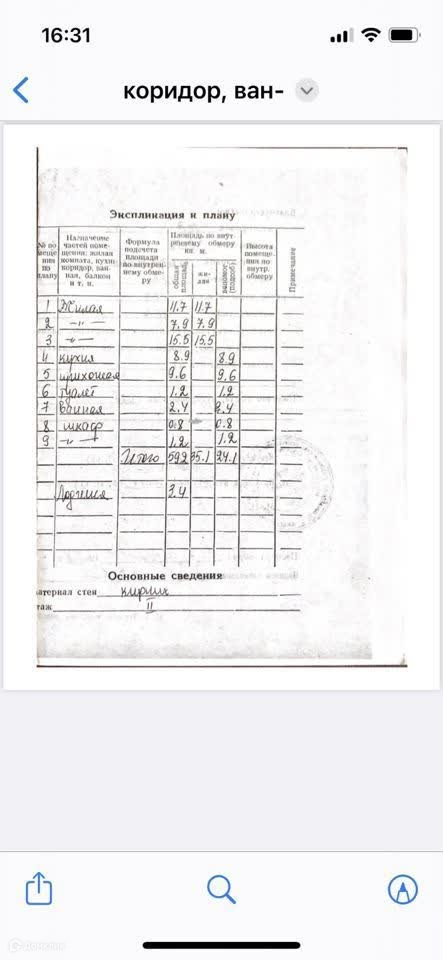 16:31
коридор, ван-
Экспликация к плану
№ по помещения по плану
Назначение частей помещения: жилая комната, кухня, коридор, ванная, балкон и т. п.
Формула подсчета площади по внутреннему обмеру
Площадь по внутреннему обмеру кв. м.
общая площадь
жилая
вспомог. (подсоб)
Высота помещения по внутр. обмеру
Примечание
1 Жилая 11.7 11.7
2 –"– 7.9 7.9
3 –"– 15.5 15.5
4 кухня 8.9 8.9
5 прихожая 9.6 9.6
6 туалет 1.2 1.2
7 ванная 2.4 2.4
8 шкаф 0.8 0.8
9 –"– 1.2 1.2
Итого 59.2 35.1 24.1
Лоджия 3.4
Основные сведения
материал стен кирпич
таж II